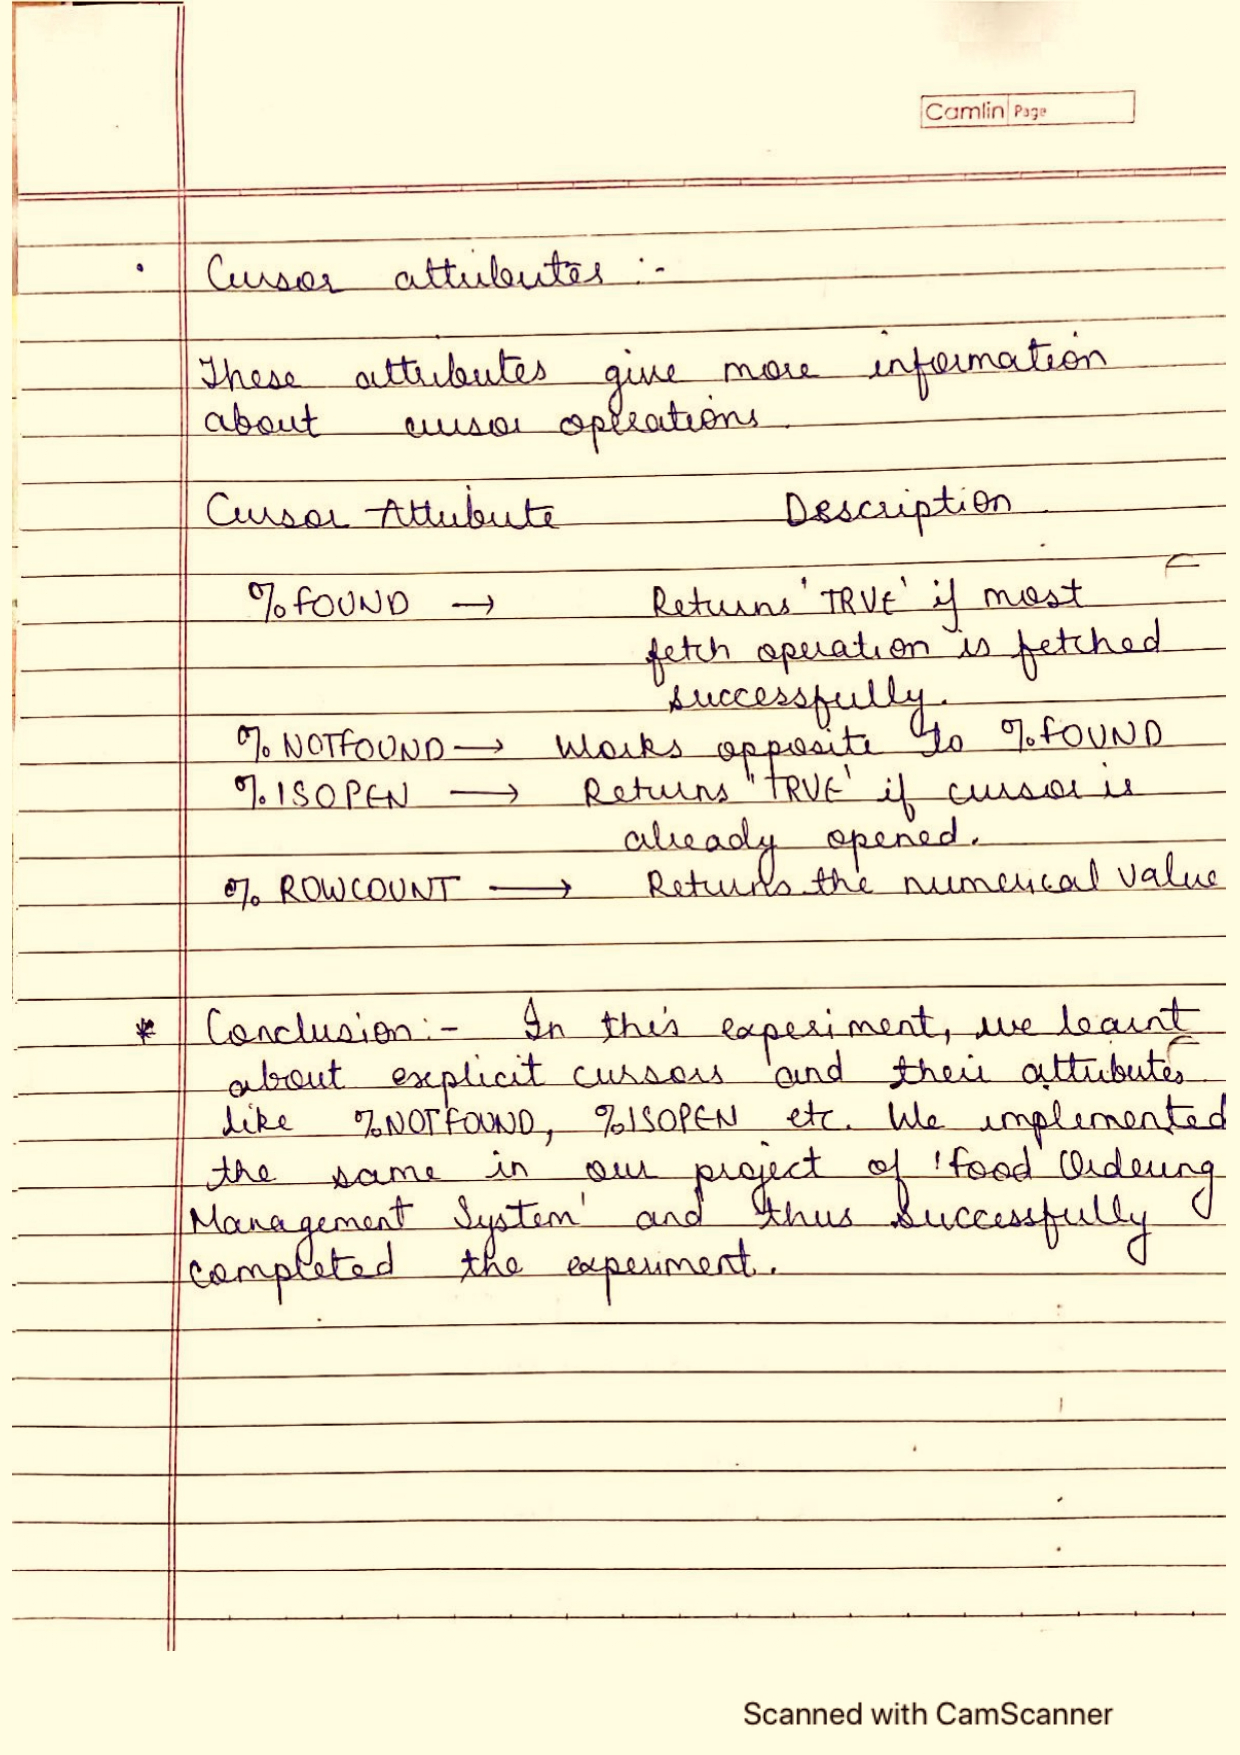 Camlin Page
• Cursor attributes :-
These attributes give more information
about cursor operations.
Cursor Attribute Description
%FOUND → Returns 'TRUE' if most
fetch operation is fetched
successfully.
%NOTFOUND → Works opposite to %FOUND
%ISOPEN → Returns "TRUE' if cursor is
already opened.
% ROWCOUNT → Returns the numerical value
* Conclusion:- In this experiment, we learnt
about explicit cursors and their attributes
like %NOTFOUND, %ISOPEN etc. We implemented
the same in our project of 'Food Ordering
Management System' and thus successfully
completed the experiment.
Scanned with CamScanner